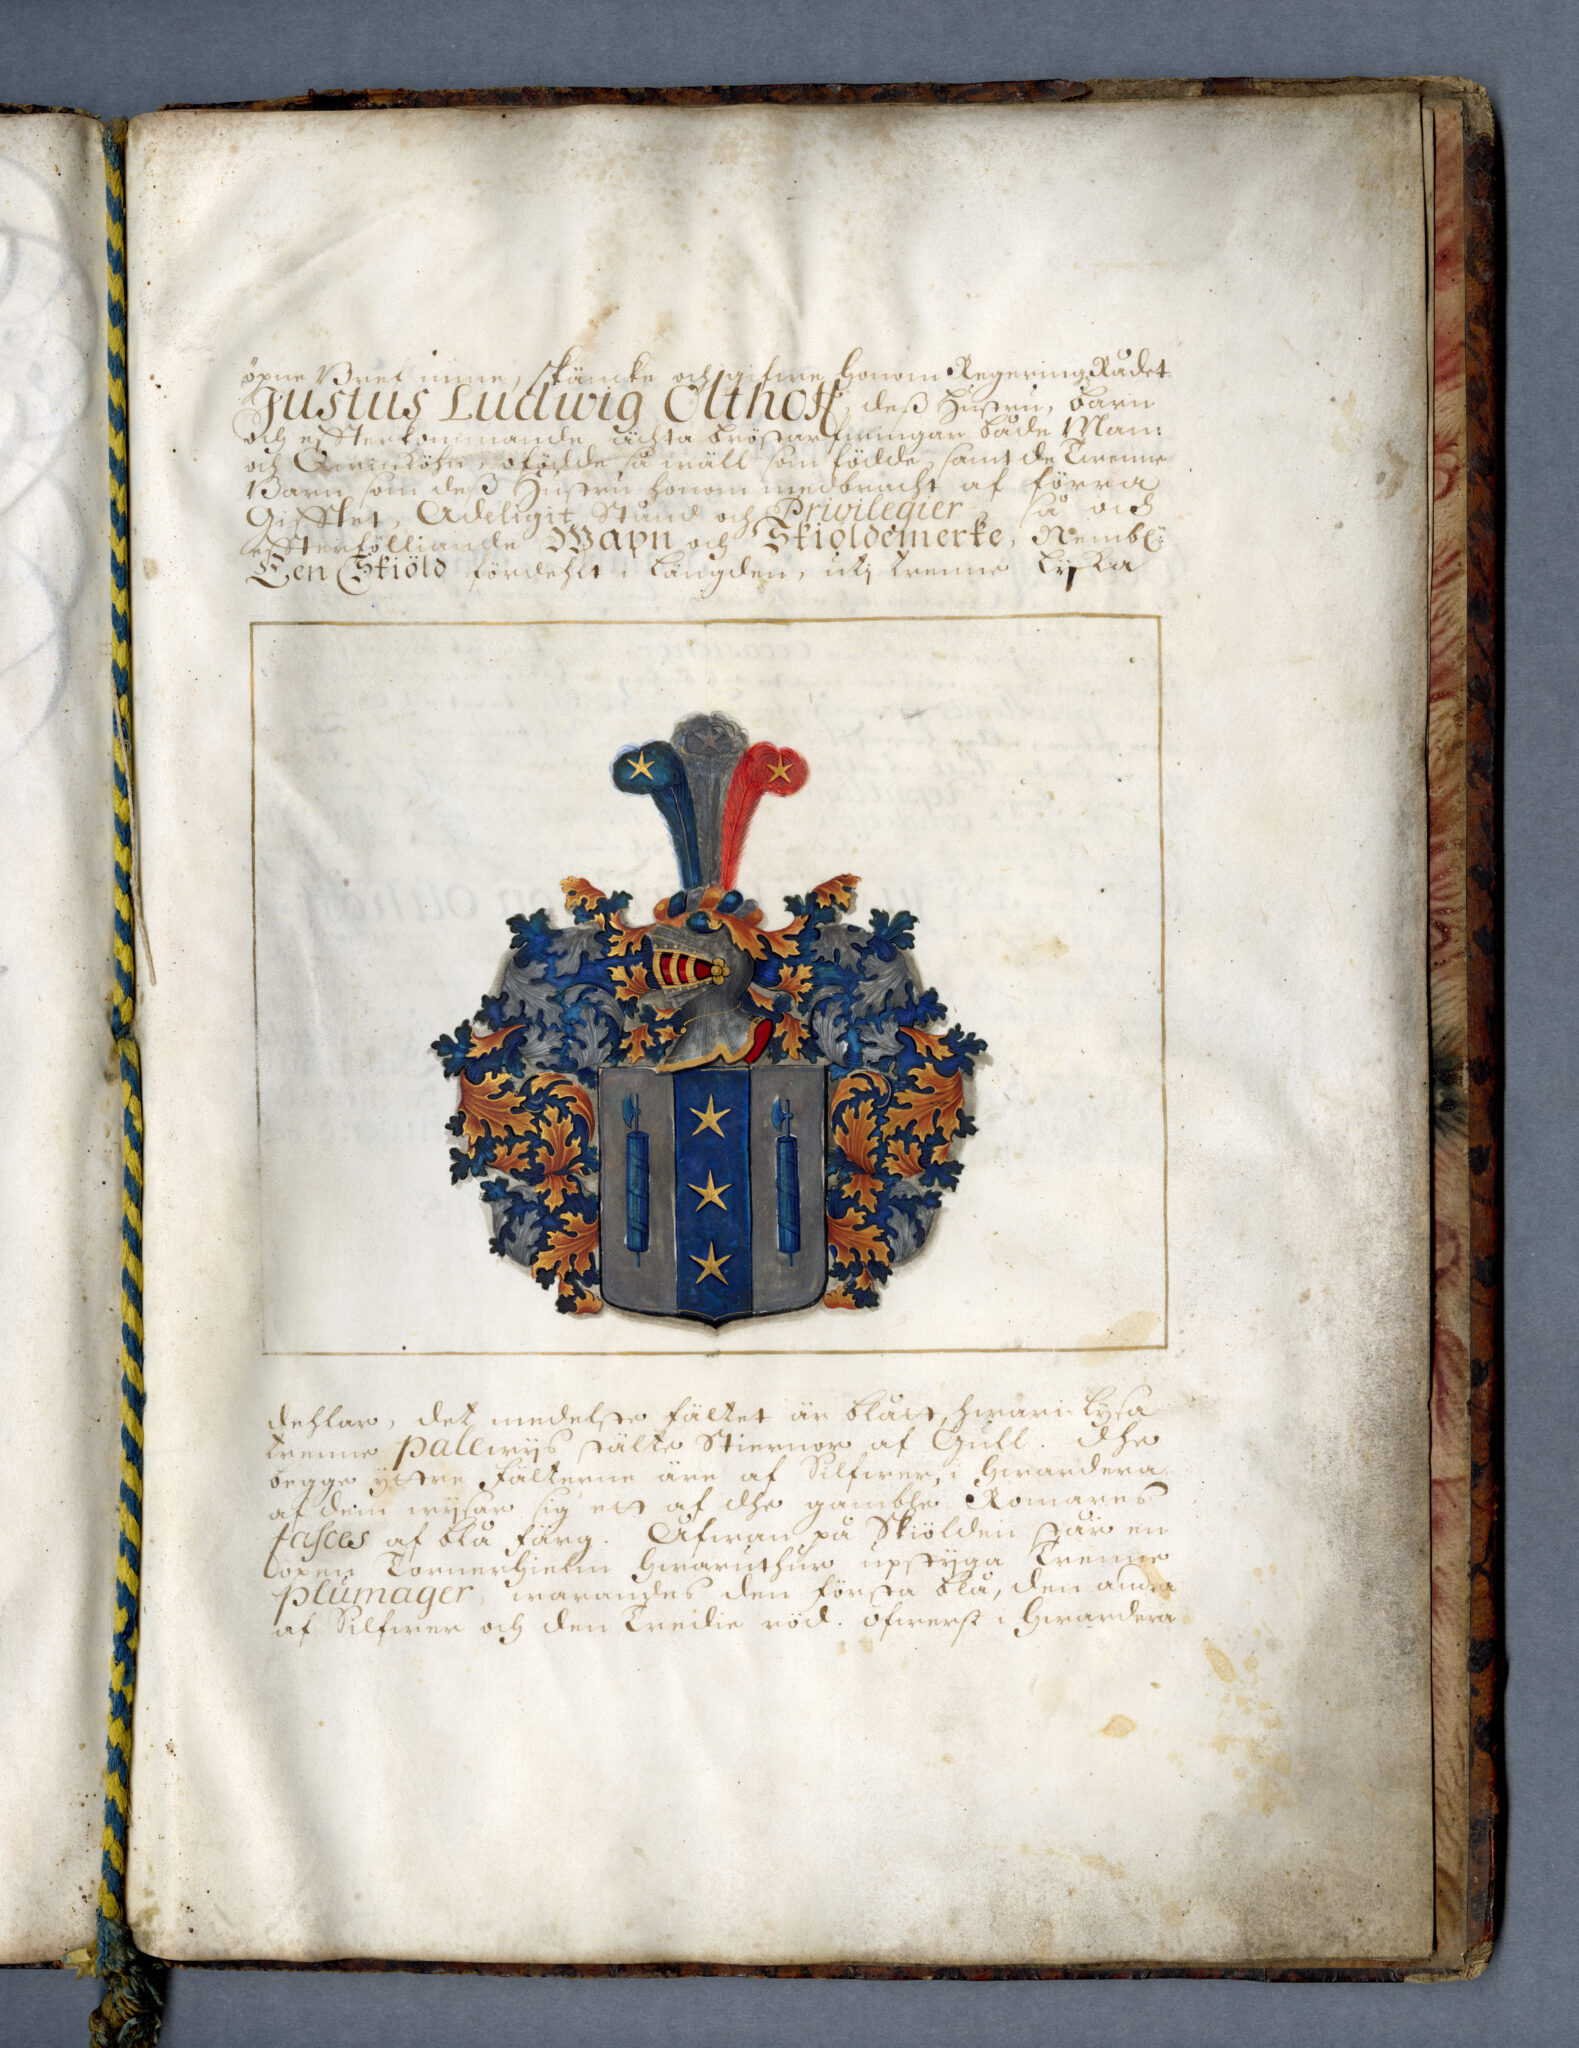 öpne Bref unne, skäncke och gifwe honom RegeringzRådet
Justus Ludwig Olthoff, deß Hustru, barn
och effterkommande ächta bröstarfwingar både Man:
och Qwinkiöhn, ofödde så wäll som födde, samt de Trenne
Barn som deß Hustru honom medbracht af förra
Gifftet, Adeligit Stånd och Privilegier, så och
effterföliande Wapn och Skiöldemerke, Nembl:
Een Skiöld fördehlt i längden, uti trenne lijka
dehlar, det medelste fältet är blått, hwari lysa
trenne palewijs stälte Stiernor af Gull. Dhe
begge yttre fälterne äre af Silfwer, i hwardera
af dem wijsar sig ett af dhe gamble Romares
fasces af blå färg. Ofwan på Skiölden står en
öpen Tornerhielm hwaruthur upstyga Trenne
plumager, warandes den första blå, den andra
af Silfwer och den Tredie röd. öfwerst i hwardera